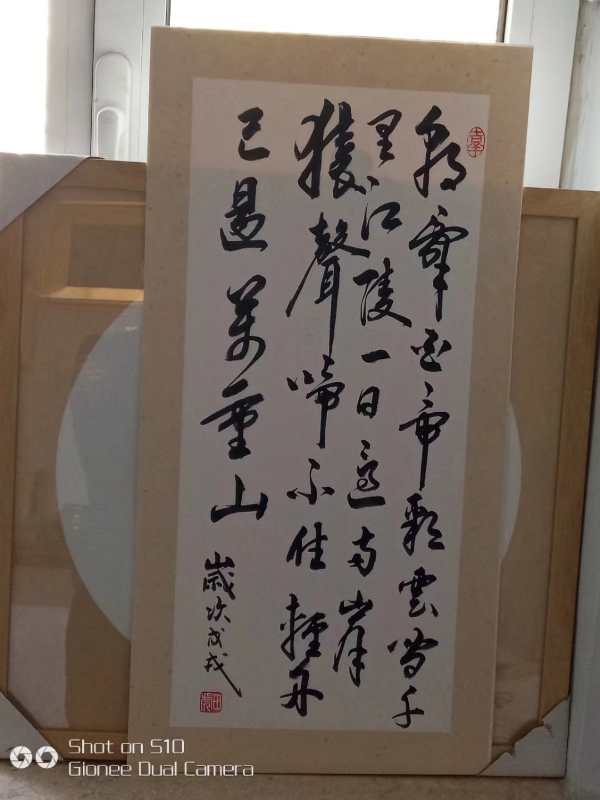 朝辭白帝彩雲間千
里江陵一日還兩岸
猿聲啼不住輕舟
已過萬重山
歲次戊戌
Shot on S10
Gionee Dual Camera